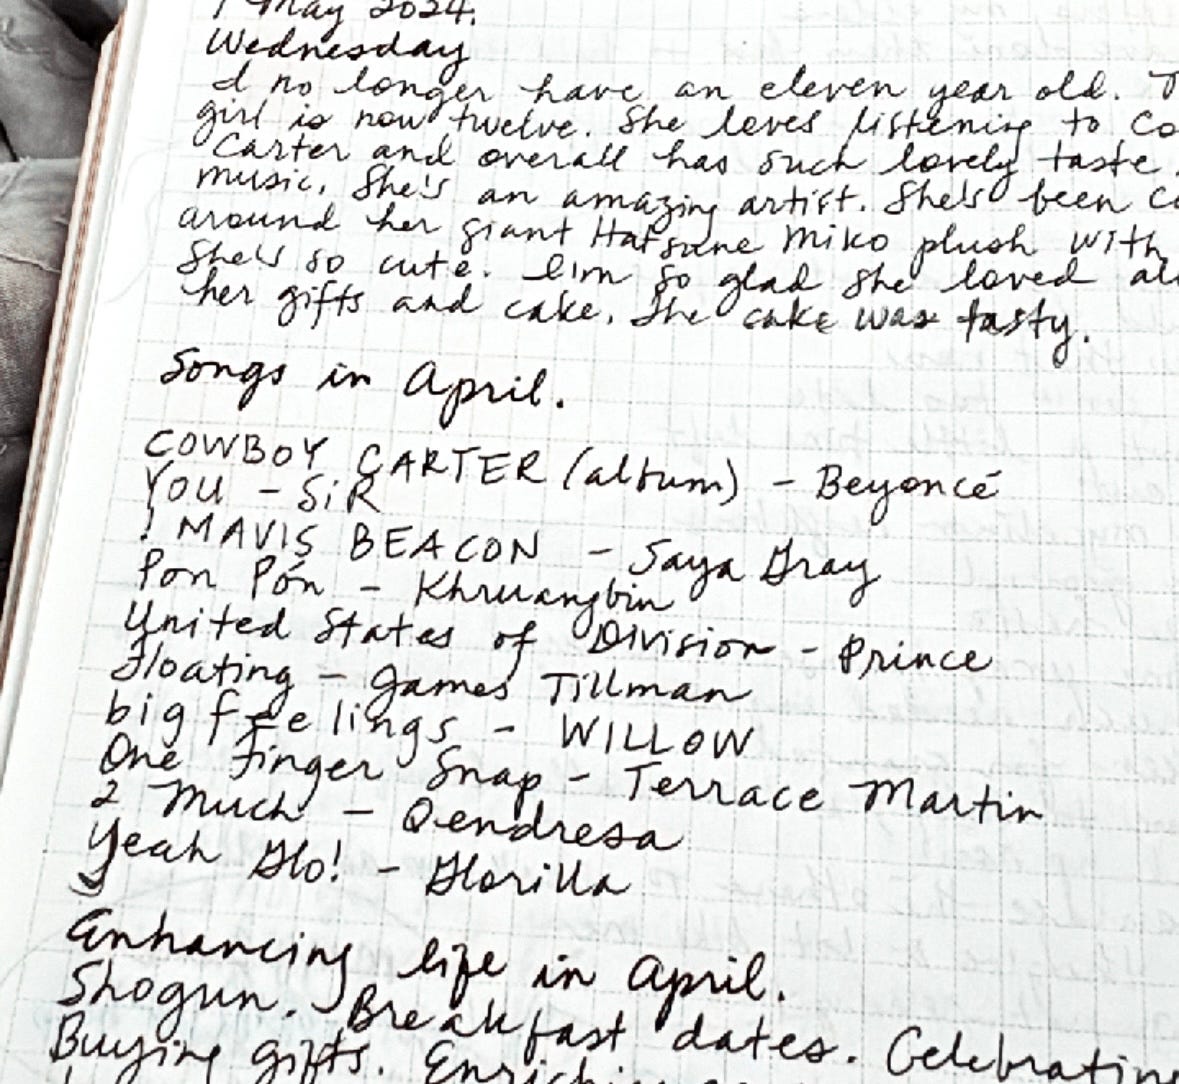 1 May 2024.
Wednesday
I no longer have an eleven year old. T
girl is now twelve. She loves listening to Co
Carter and overall has such lovely taste
music. She's an amazing artist. She's been ca
around her giant Hatsune Miko plush with
She's so cute. I'm so glad she loved all
her gifts and cake. The cake was tasty.
Songs in April.
COWBOY CARTER (album) - Beyoncé
YOU - SiR
! MAVIS BEACON - Saya Gray
Pon Pón - Khruangbin
United States of Division - Prince
Floating - James Tillman
big feelings - WILLOW
One Finger Snap - Terrace Martin
2 Much - Qendresa
Yeah Glo! - Glorilla
Enhancing life in April.
Shogun. Breakfast dates. Celebratin
Buying gifts.